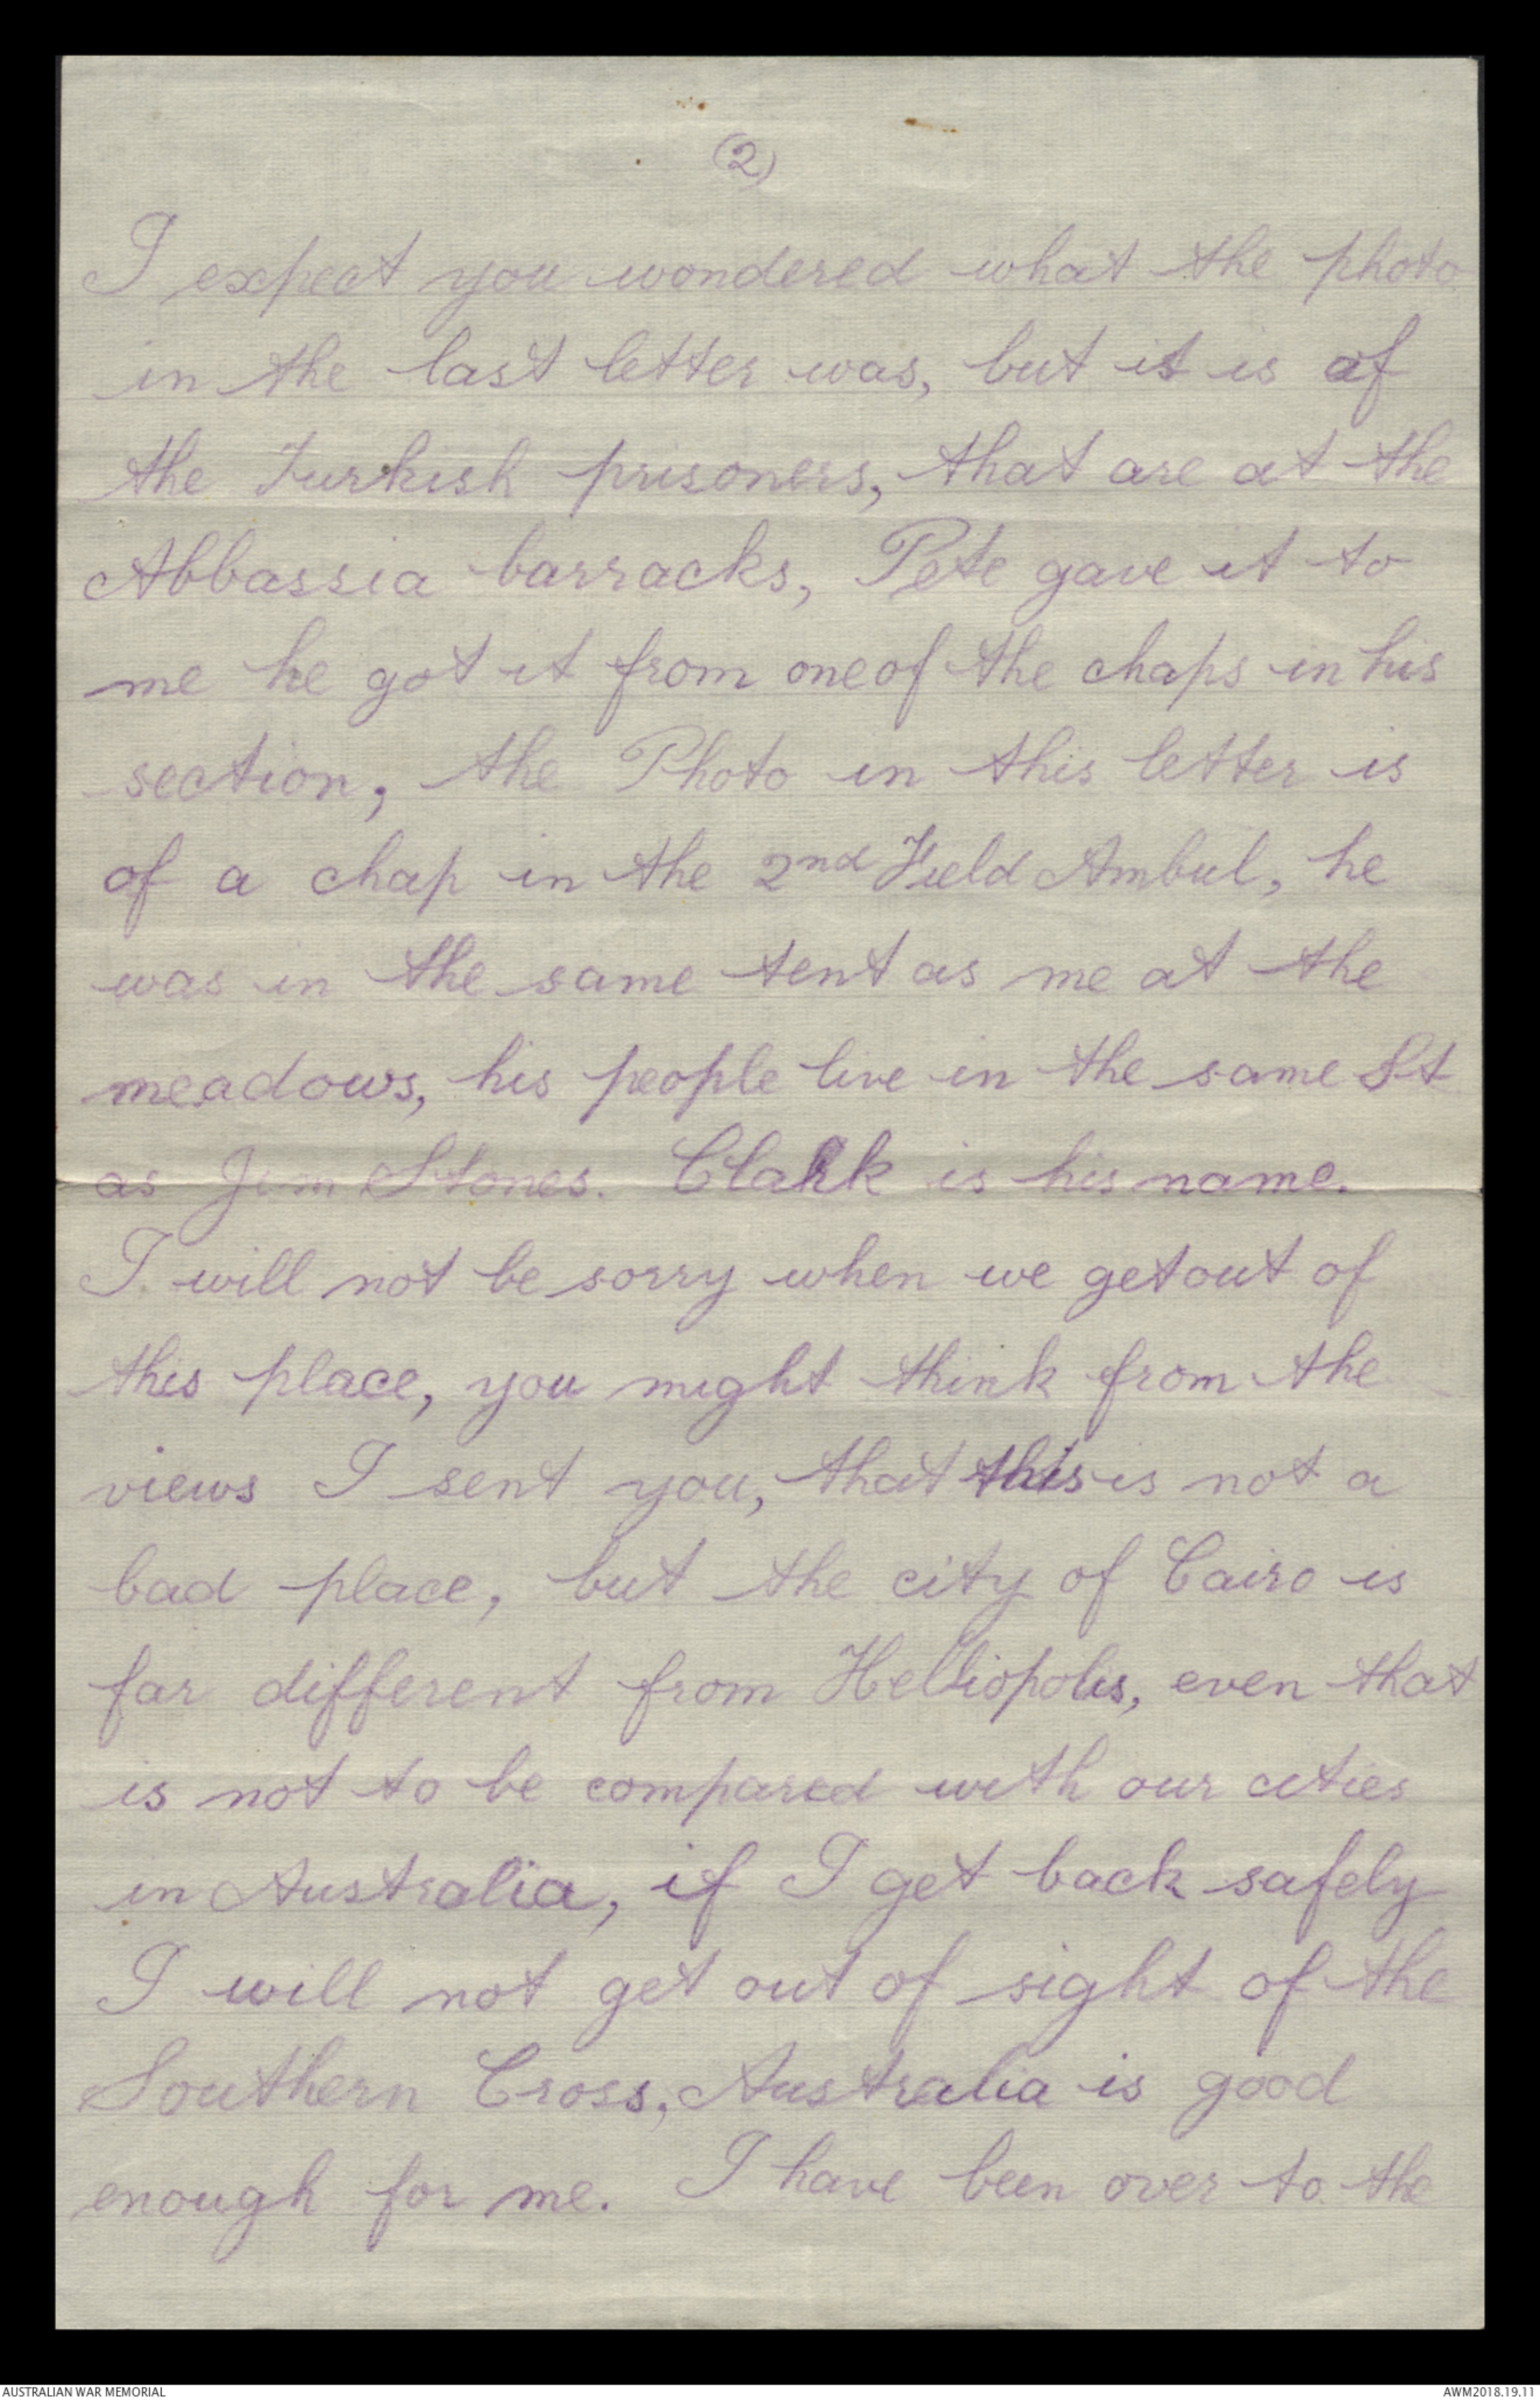 (2)
I expect you wondered what the photo
in the last letter was, but it is of
the Turkish prisoners, that are at the
Abbassia barracks, Pete gave it to
me he got it from one of the chaps in his
section, the Photo in this letter is
of a chap in the 2nd Field Ambul, he
was in the same tent as me at the
meadows, his people live in the same St
as Jim Stones. Clark is his name.
I will not be sorry when we get out of
this place, you might think from the
views I sent you, that this is not a
bad place, but the city of Cairo is
far different from Helliopolis, even that
is not to be compared with our cities
in Australia, if I get back safely
I will not get out of sight of the
Southern Cross, Australia is good
enough for me. I have been over to the
AUSTRALIAN WAR MEMORIAL
AWM2018.19.11